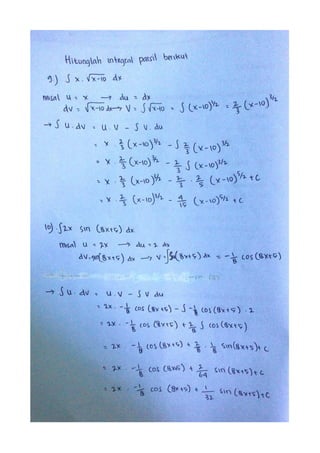 Hitunglah integral parsil berikut
9.) ∫ x . √x-10 dx
misal u = x → du = dx
dv = √x-10 dx → V = ∫ √x-10 = ∫ (x-10)^1/2 = 2/3 (x-10)^3/2
→ ∫ u . dv = u . v - ∫ v . du
= x . 2/3 (x-10)^3/2 - ∫ 2/3 (x-10)^3/2
= x . 2/3 (x-10)^3/2 - 2/3 ∫ (x-10)^3/2
= x . 2/3 (x-10)^3/2 - 2/3 . 2/5 (x-10)^5/2 + C
= x . 2/3 (x-10)^3/2 - 4/15 (x-10)^5/2 + C
10) ∫2x sin (8x+5) dx
misal u = 2x → du = 2 dx
dv = sin(8x+5) dx → v = ∫sin(8x+5) dx = -1/8 cos (8x+5)
→ ∫ u . dv = u . v - ∫ v du
= 2x . -1/8 cos (8x+5) - ∫ -1/8 cos (8x+5) . 2
= 2x . -1/8 cos (8x+5) + 2/8 ∫ cos (8x+5)
= 2x . -1/8 cos (8x+5) + 2/8 . 1/8 sin(8x+5) + C
= 2x . -1/8 cos (8x+5) + 2/64 sin (8x+5) + C
= 2x . -1/8 cos (8x+5) + 1/32 sin (8x+5) + C